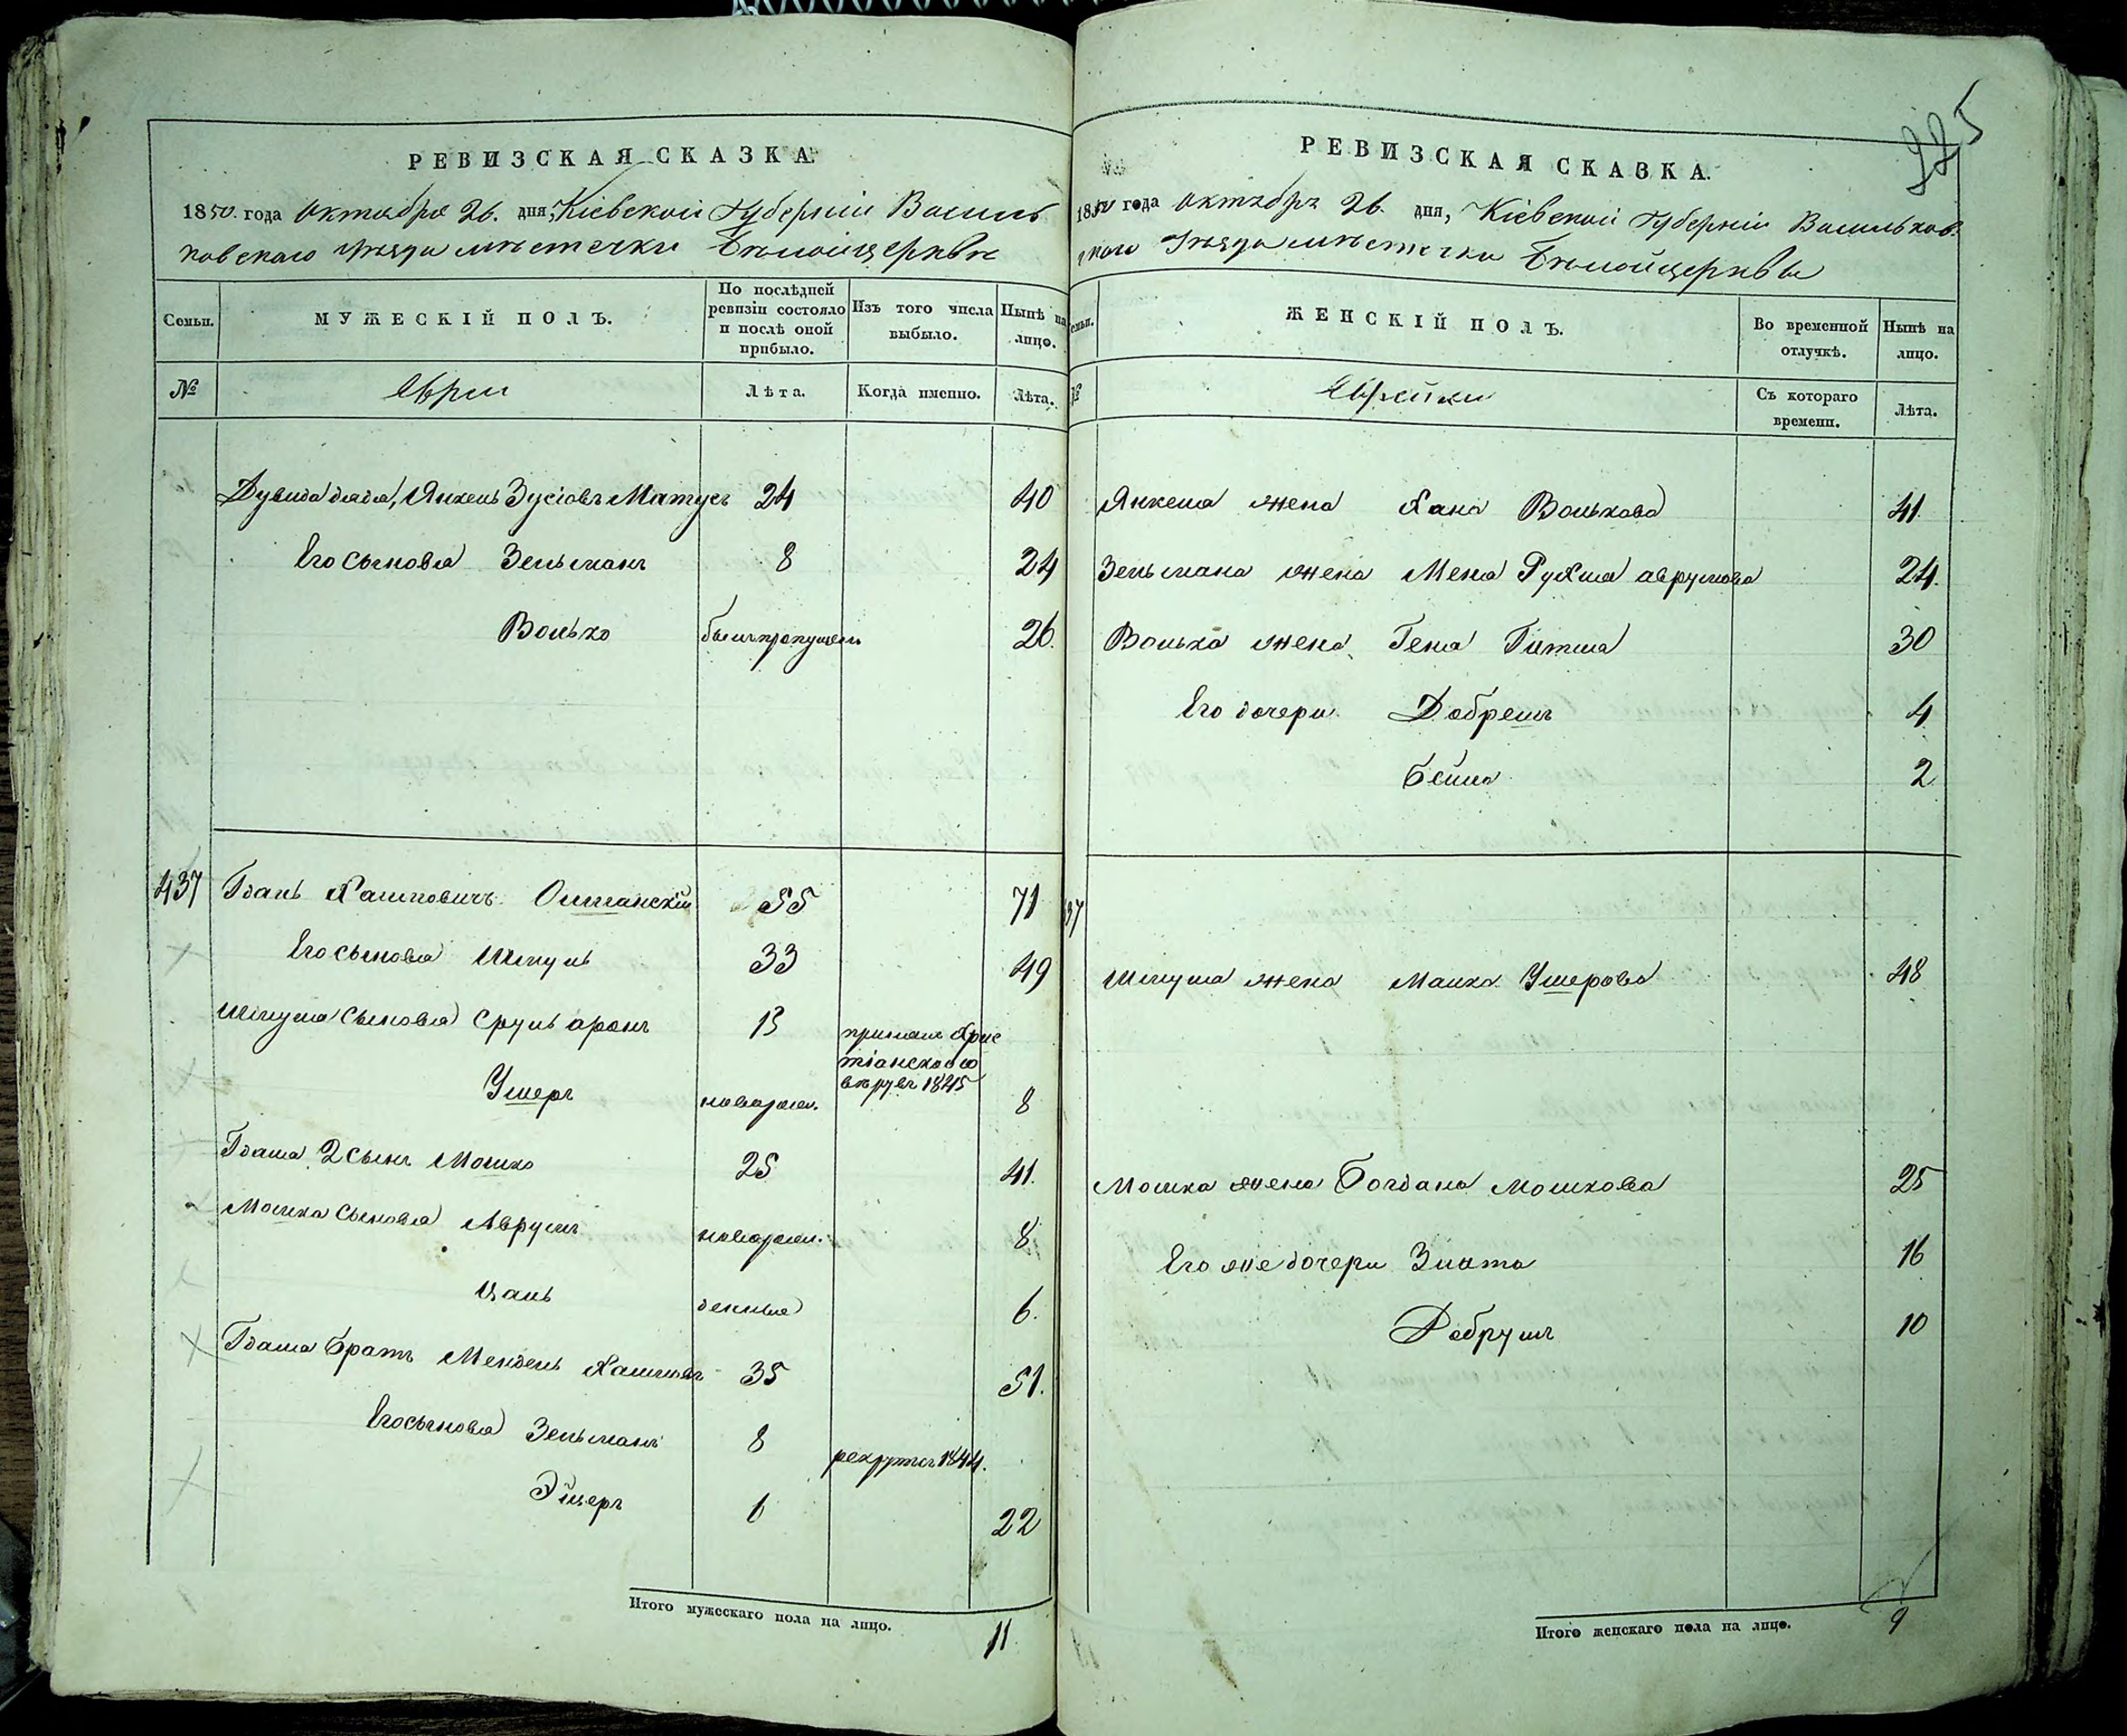 225
РЕВИЗСКАЯ СКАЗКА.
1850. года Октября 26. дня, Кіевской Губерніи Василь
ковскаго уѣзда мѣстечки Бѣлойцерквѣ
Семьи.
МУЖЕСКІЙ ПОЛЪ.
По послѣдней ревизіи состояло и послѣ оной прибыло.
Изъ того числа выбыло.
Нынѣ на лицо.
№
Евреи
Лѣта.
Когда именно.
Лѣта.
Дувида дядя, Янкель Зусіовъ Матусъ 24 40
Его сыновья Зельманъ 8 24
Волько былъ пропущенъ 26.
437 Гдаль Хаимовичъ Ольшанскій 55 71
Его сыновья Шмуль 33 49
Шмуля сыновья Сруль Аронъ 13 принялъ Хрис
тіанскою
вѣру въ 1845
Ушеръ новорож. 8
Гдаля 2 сынъ Мошко 25 41.
Мошка сыновья Аврумъ новорож. 8
Цаль денные 6.
Гдаля братъ Мендель Хаимовъ 35 51.
Его сыновья Зельманъ 8 рекрутъ 1844.
Эйшеръ 6 22
Итого мужескаго пола на лицо. 11
РЕВИЗСКАЯ СКАЗКА.
1850 года Октября 26. дня, Кіевской Губерніи Васильков.
скаго Уѣзда мѣстечки Бѣлойцерквы
Семьи.
ЖЕНСКІЙ ПОЛЪ.
Во временной отлучкѣ.
Нынѣ на лицо.
№
Еврейки
Съ котораго времени.
Лѣта.
Янкеля жена Хана Волькова 41.
Зельмана жена Меня Рухля Аврумова 24.
Волька жена Геня Гитля 30
Его дочери Добрешъ 4
Бейла 2
37
Шмуля жена Малка Ушерова 48
Мошка жена Богдана Мошкова 25
Его же дочери Злата 16
Добрушъ 10
Итого женскаго пола на лицо. 9